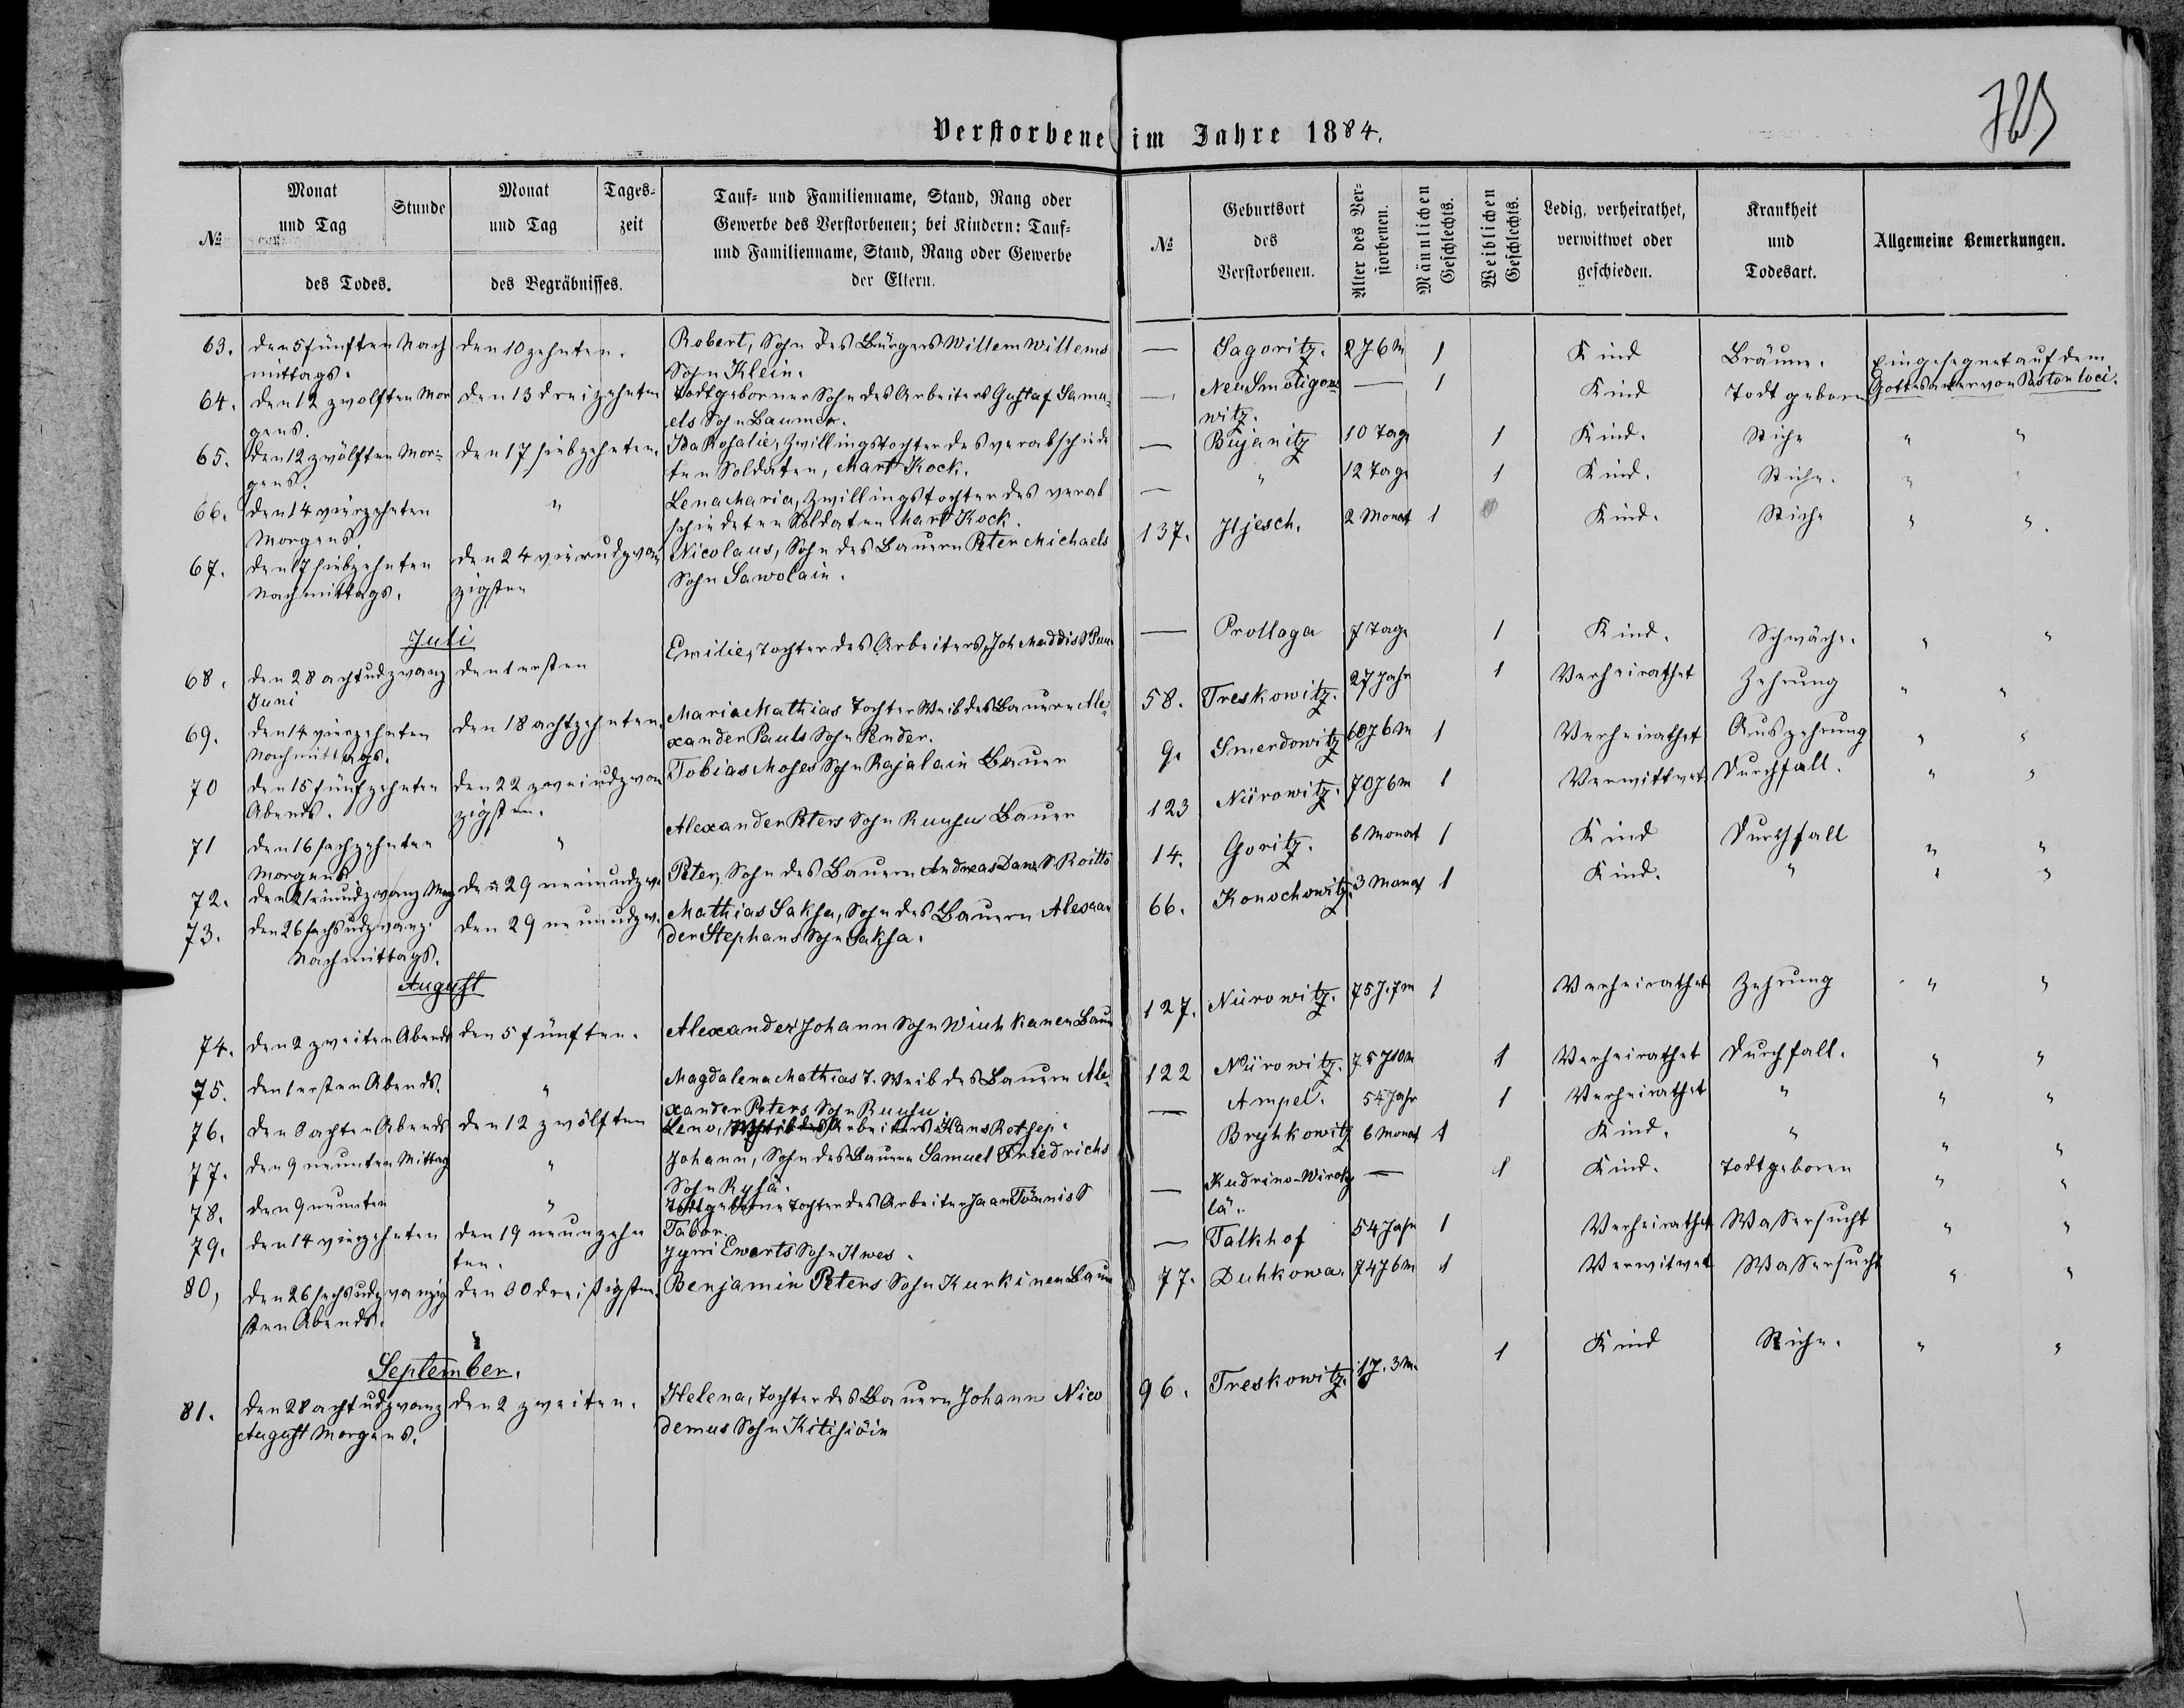 785
Verstorbene im Jahre 1884.
№
Monat
und Tag
Stunde
des Todes.
Monat
und Tag
Tages-
zeit
des Begräbnisses.
Tauf- und Familienname, Stand, Rang oder
Gewerbe des Verstorbenen; bei Kindern: Tauf-
und Familienname, Stand, Rang oder Gewerbe
der Eltern.
№
Geburtsort
des
Verstorbenen.
Alter des Ver-
storbenen.
Männlichen
Geschlechts.
Weiblichen
Geschlechts.
Ledig, verheirathet,
verwittwet oder
geschieden.
Krankheit
und
Todesart.
Allgemeine Bemerkungen.
63. den 5 fünften Nach den 10 zehnten. Robert, Sohn des Bürgers Willem Willems — Sagoritz. 2J 6M 1 Kind Bräune. Eingesegnet auf dem
mittags. Sohn Klein.
64. den 12 zwölften Mor den 13 dreizehnten Todtgeborner Sohn des Arbeiters Gustaf Samu — Neu Smoligo — 1 Kind Todtgeboren Gottesacker von Pastor loci.
gens. els Sohn Baumer. witz.
65. den 12 zwölften Mor- den 17 siebzehnten. Ida Rosalie, Zwillingstochter des verabschiede — Bujanitz 10 Tage 1 Kind. Stiche " "
gens. ten Soldaten, Mart Kock.
66. den 14 vierzehnten " Lena Maria, Zwillingstochter des verab — " 12 Tage 1 Kind. Stiche. " "
Morgens schiedeten Soldaten Mart Kock.
67. den 17 siebzehnten den 24 vierudzwan Nicolaus, Sohn des Bauern Peter Michaels 137. Iljesch. 2 Monat 1 Kind. Stiche " ".
Nachmittags. zigsten Sohn Sawolain.
Juli
68. den 28 achtudzwanz den 1 ersten Emilie, Tochter des Arbeiters Joh Maddis S — Prollaga 7 Tage 1 Kind. Schwäche. " "
Juni
69. den 14 vierzehnten den 18 achtzehnten. Maria Mathias Tochter Weib des Bauern Ale- 58. Treskowitz. 27 Jahr 1 Verheirathet Zehrung " "
Nachmittags. xander Pauls Sohn Pender.
70 den 15 fünfzehnten den 22 zweiudzwan Tobias Moses Sohn Rajalain Bauer 9. Smerdowitz 60J 6M 1 Verheirathet Auszehrung " "
Abends. zigsten.
71 den 16 sechzehnten " Alexander Peters Sohn Ruuhu Bauer 123 Nürowitz. 70J 6m 1 Verwittwet Durchfall. " "
Morgens
72. den 21 einudzwanz Mrg den 29 neunudzw. Peter, Sohn des Bauern Andreas Dan. S. Roitto 14. Goritz. 6 Monat 1 Kind Durchfall " "
73. den 26 sechsudzwanz. den 29 neunudzw. Mathias Saksa, Sohn des Bauern Alexan 66. Konochowitz. 3 Monat 1 Kind. " " "
Nachmittags. der Stephans Sohn Saksa.
August
74. den 2 zweiten Abends den 5 fünften. Alexander Johann Sohn Wiuhkanen Bauer 127. Nürowitz. 75J. 7m 1 Verheirathet Zehrung " "
75. den 1 ersten Abends. " Magdalena Mathias T. Weib des Bauern Ale- 122 Nürowitz. 75J 10m 1 Verheirathet Durchfall. " "
xander Peters Sohn Ruuhu.
76. den 8 achten Abends den 12 zwölften Leno, Weib des Arbeiters Hans Rotsep. — Ampel. 54 Jahr 1 Verheirathet " " "
77. den 9 neunten Mittag " Johann, Sohn des Bauern Samuel Friedrichs Bryhkowitz 6 Monat 1 Kind. " " "
Sohn Ryhä.
78. den 9 neunten " Todtgeborne Tochter des Arbeiters Jaan Tönnis S — Kudrino-Wirok — 1 Kind. Todtgeboren " "
Tabor. lä.
79. den 14 vierzehnten den 19 neunzehn Jyrri Ewerts Sohn Ilwes. — Talkhof 54 Jahr 1 Verheirathet Wassersucht " "
ten.
80, den 26 sechsudzwanzig den 30 dreißigsten. Benjamin Peters Sohn Kurkinen Bauer 77. Duhkowa. 74J 6m 1 Verwitwet Wassersucht " "
sten Abends.
September.
81. den 28 achtudzwanz den 2 zweiten. Helena, Tochter des Bauern Johann Nico 96. Treskowitz. 1J. 3M. 1 Kind Stiche. " "
August Morgens. demus Sohn Kitisiöin